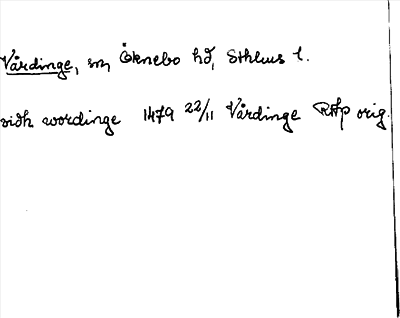 Vårdinge, sn, Öknebo hd, Sthlms l.
vidh wordinge 1479 22/11 Vårdinge RAp orig.